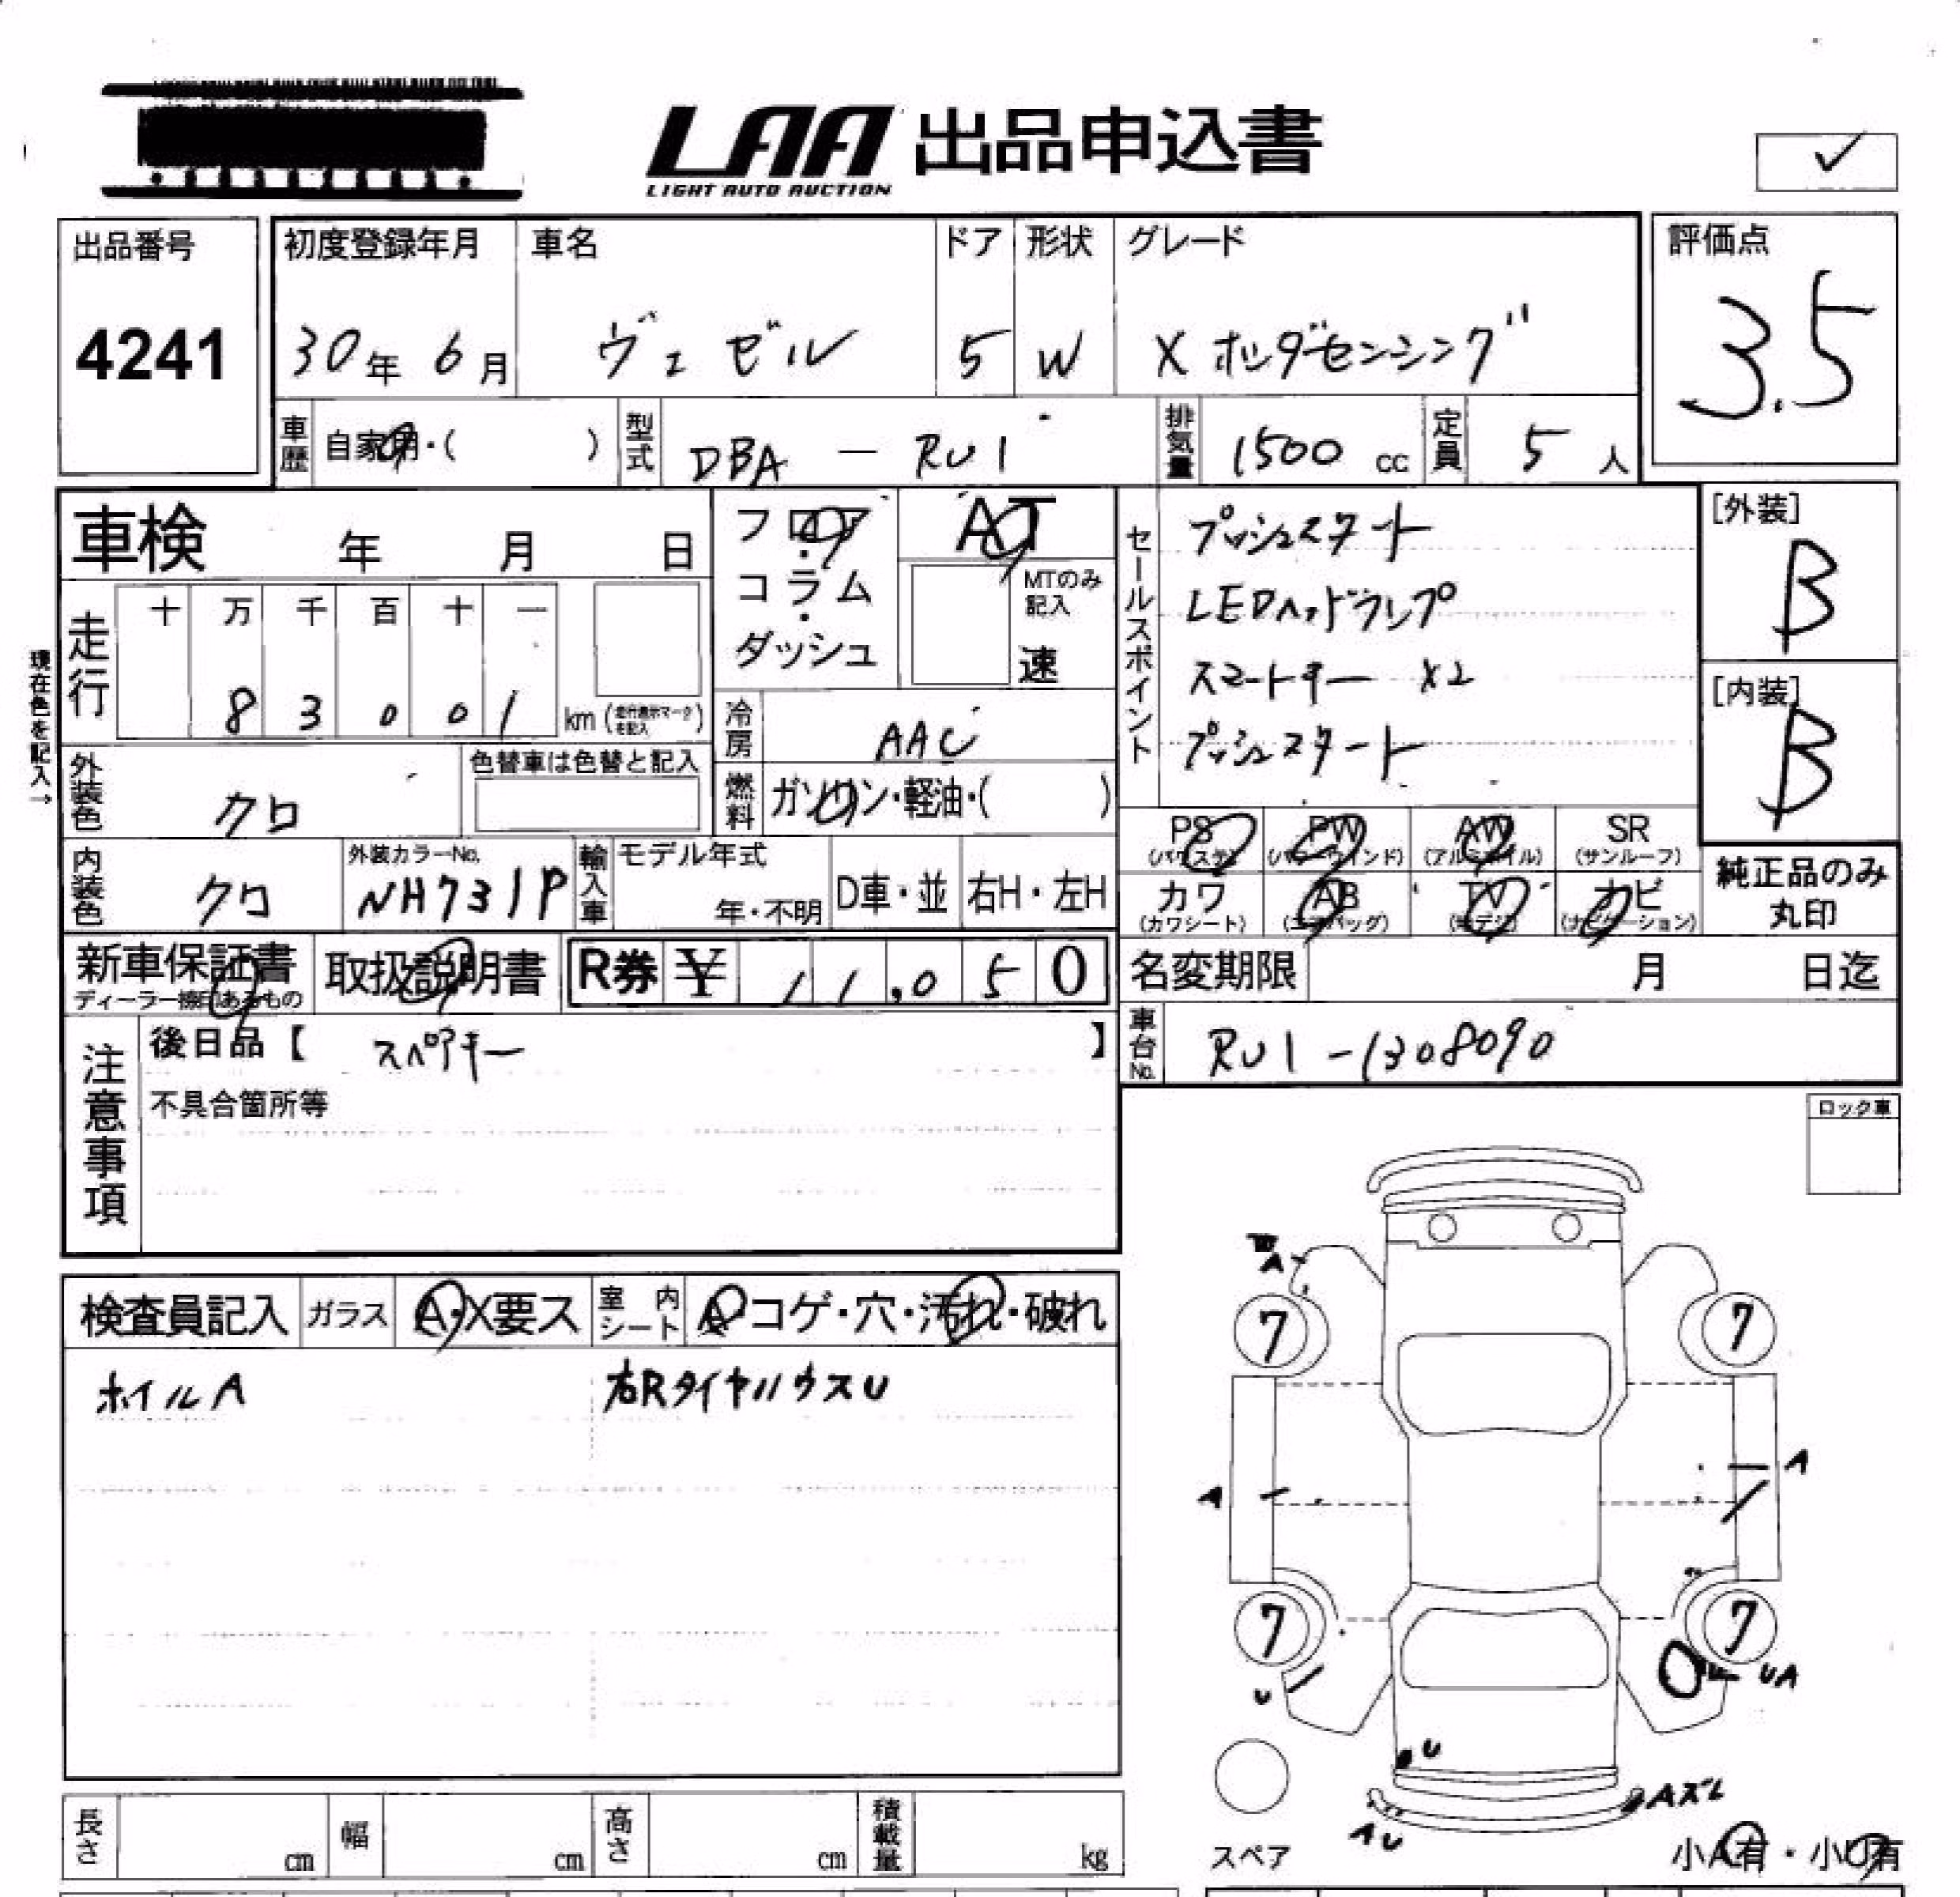 LAA 出品申込書
LIGHT AUTO AUCTION
出品番号
4241
初度登録年月
30年 6月
車名
ヴェゼル
ドア
5
形状
W
グレード
X ホンダセンシング
評価点
3.5
車歴 自家用・( )
型式 DBA - RU1
排気量 1500 cc
定員 5 人
車検 年 月 日
フロア・コラム・ダッシュ
AT
MTのみ記入
速
セールスポイント
プッシュスタート
LEDヘッドランプ
スマートキー x2
プッシュスタート
[外装]
B
[内装]
B
現在色を記入→
走行
十 万 千 百 十 一
8 3 0 0 1 km (走行表示マークを記入)
冷房 AAC
燃料 ガソリン・軽油・( )
外装色 クロ
色替車は色替と記入
内装色 クロ
外装カラーNo.
NH731P
輸入車
モデル年式
年・不明
D車・並
右H・左H
PS (パワステ)
PW (パワーウインド)
AW (アルミホイル)
SR (サンルーフ)
カワ (カワシート)
AB (エアバッグ)
TV (地デジ)
ナビ (ナビゲーション)
純正品のみ丸印
新車保証書
ディーラー捺印あるもの
取扱説明書
R券 ¥ 11,050
名変期限 月 日迄
車台No. RU1-1308090
注意事項
後日品【 スペアキー 】
不具合箇所等
ロック車
検査員記入
ガラス A・X要ス
室内シート A コゲ・穴・汚れ・破れ
ホイルA
右RタイヤハウスU
A
7
7
A
A
7
7
U
UA
U
Aズレ
AU
スペア
小A有・小U有
長さ cm
幅 cm
高さ cm
積載量 kg